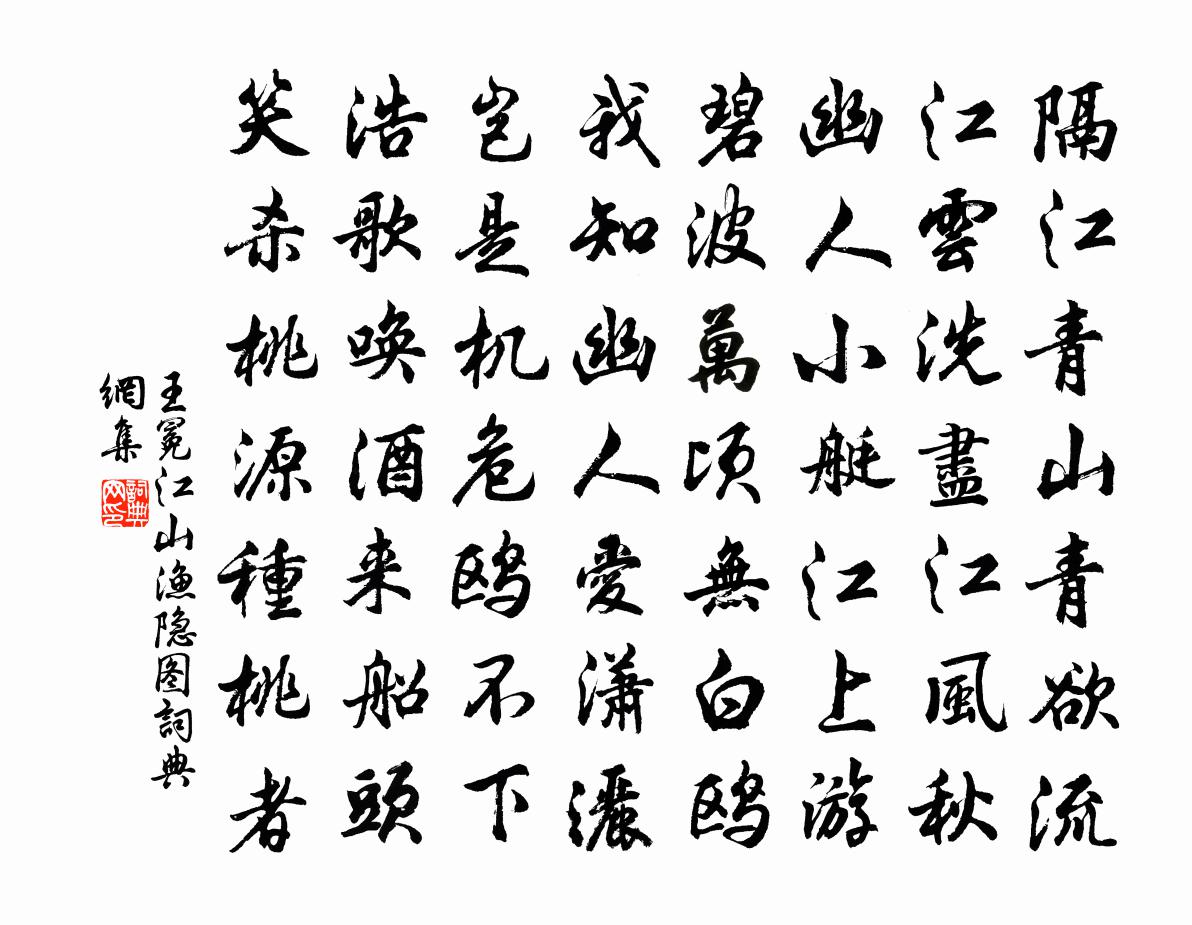 隔江青山青欲流
江雲洗盡江風秋
幽人小艇江上游
碧波萬頃無白鸥
我知幽人愛潇灑
岂是机危鸥不下
浩歌唤酒来船頭
笑杀桃源種桃者
王冕江山渔隐图詞典
網集
詞典
网印